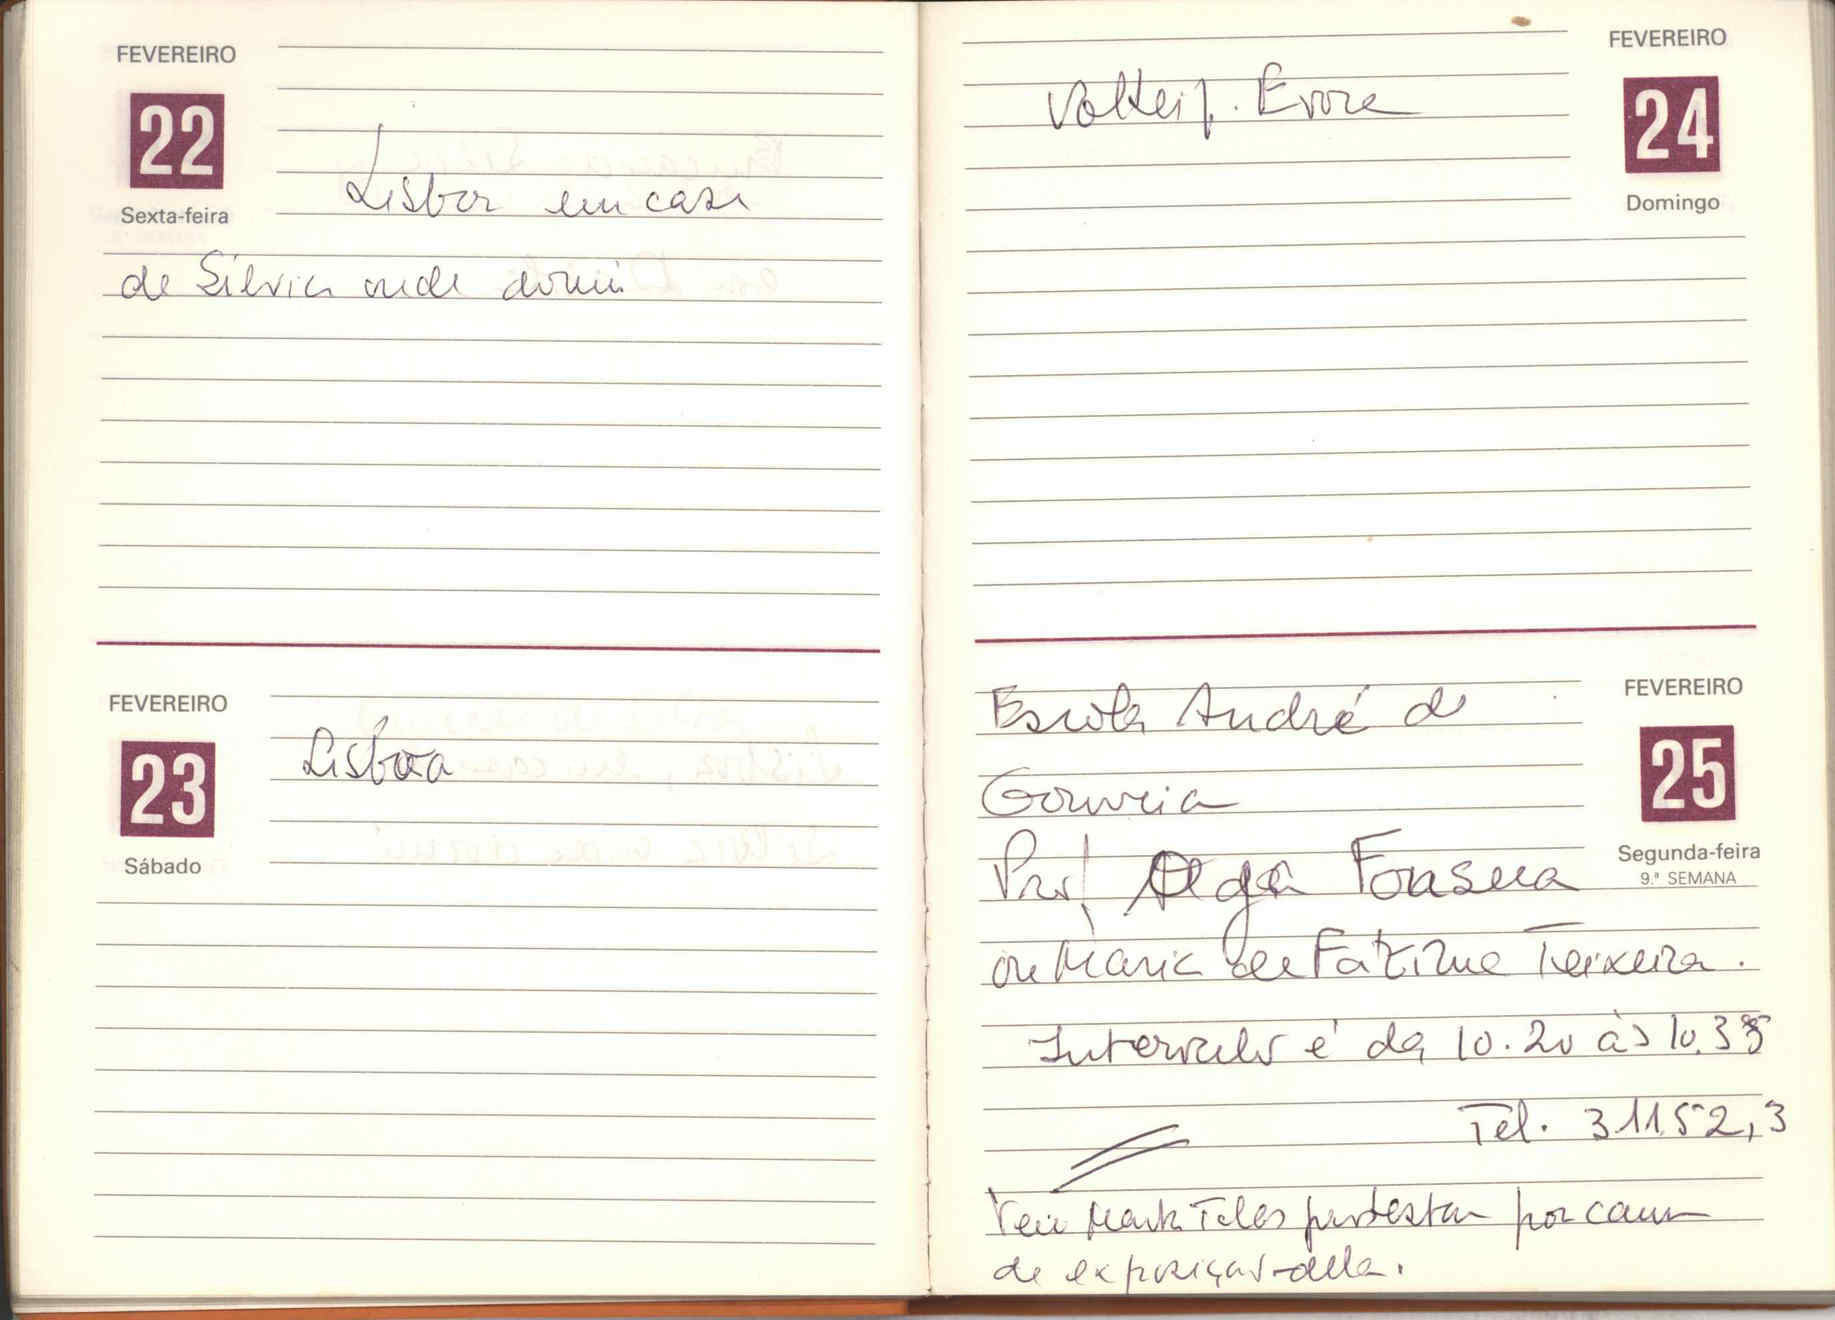 FEVEREIRO
22
Sexta-feira
Lisboa em casa
de Silvia onde dormi
FEVEREIRO
23
Sábado
Lisboa
FEVEREIRO
24
Domingo
Voltei p. Evora
FEVEREIRO
25
Segunda-feira
9.ª SEMANA
Escola André de
Gouveia
Prof Olga Fonseca
ou Maria de Fátima Teixeira.
Intervalo é das 10.20 às 10.35
Tel. 31152,3
Veiu Teles protestar por causa
de exposição della.